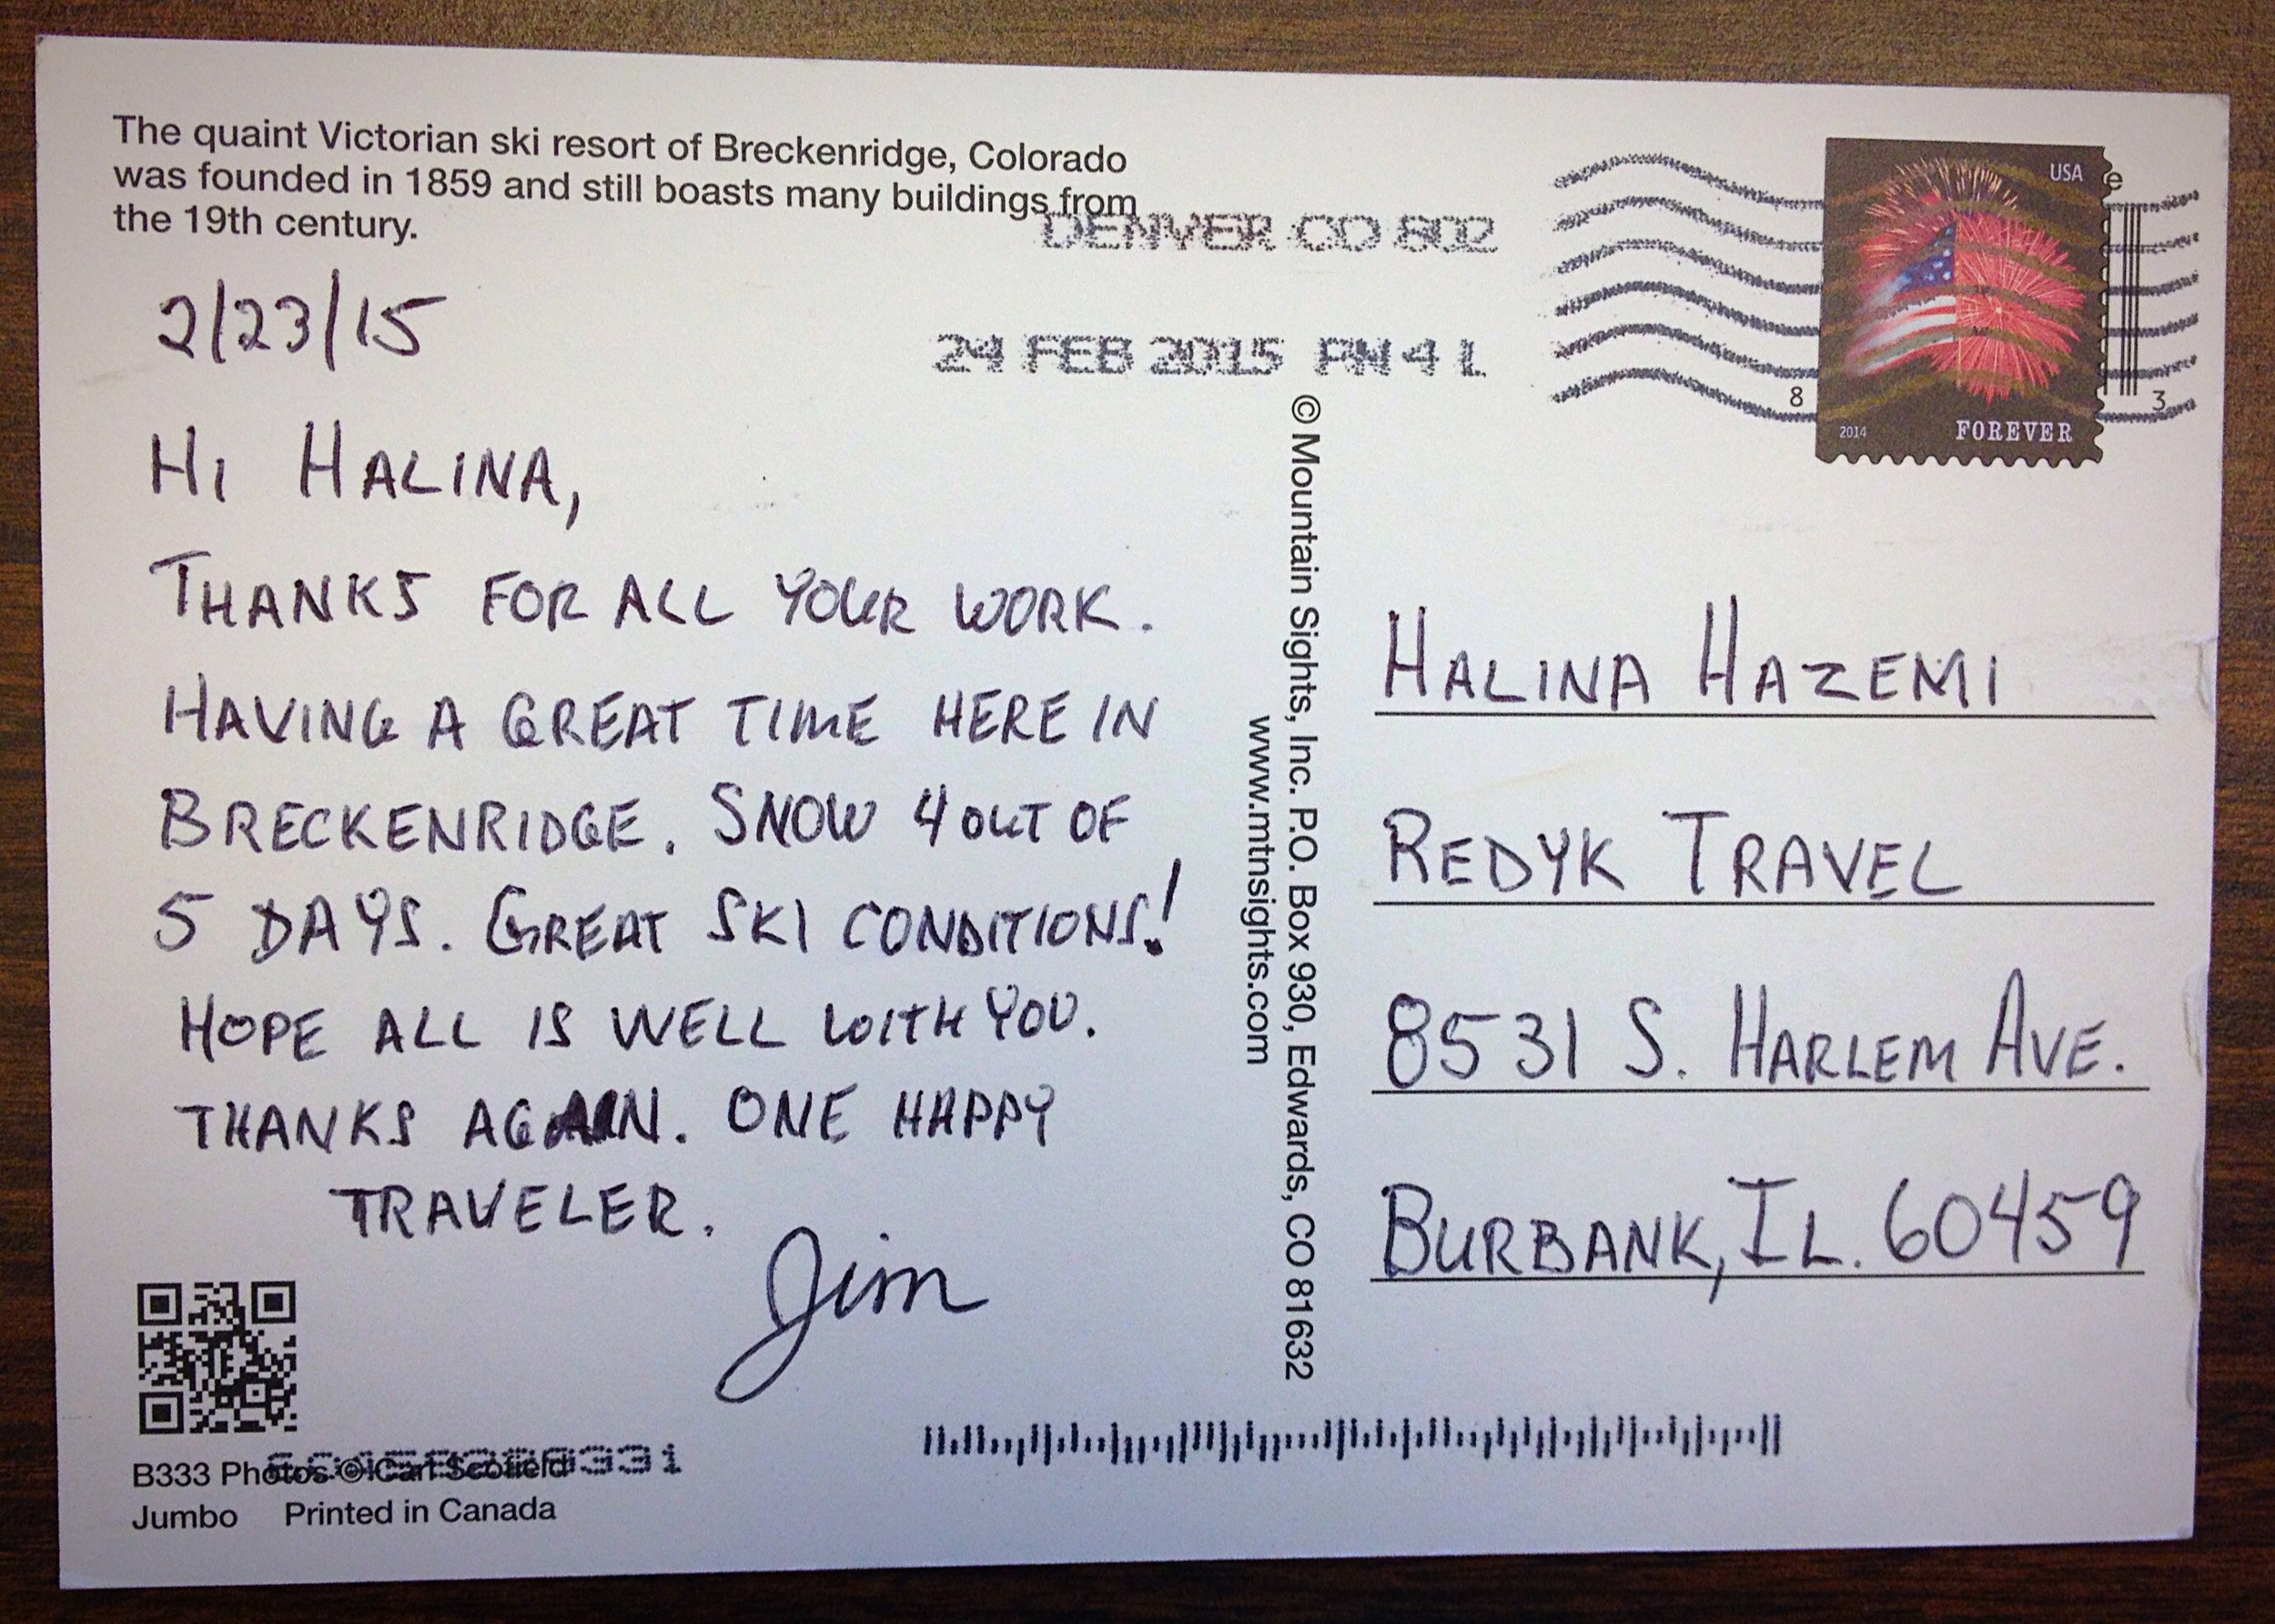 The quaint Victorian ski resort of Breckenridge, Colorado
was founded in 1859 and still boasts many buildings from
the 19th century.
DENVER CO 802
24 FEB 2015 PM 4 L
USA
2014
FOREVER
e
8
3
2/23/15
HI HALINA,
THANKS FOR ALL YOUR WORK.
HAVING A GREAT TIME HERE IN
BRECKENRIDGE. SNOW 4 OUT OF
5 DAYS. GREAT SKI CONDITIONS!
HOPE ALL IS WELL WITH YOU.
THANKS AGAIN. ONE HAPPY
TRAVELER.
Jim
© Mountain Sights, Inc. P.O. Box 930, Edwards, CO 81632
www.mtnsights.com
HALINA HAZEMI
REDYK TRAVEL
8531 S. HARLEM AVE.
BURBANK, IL. 60459
B333 Photos © Carl Scofield
Jumbo Printed in Canada